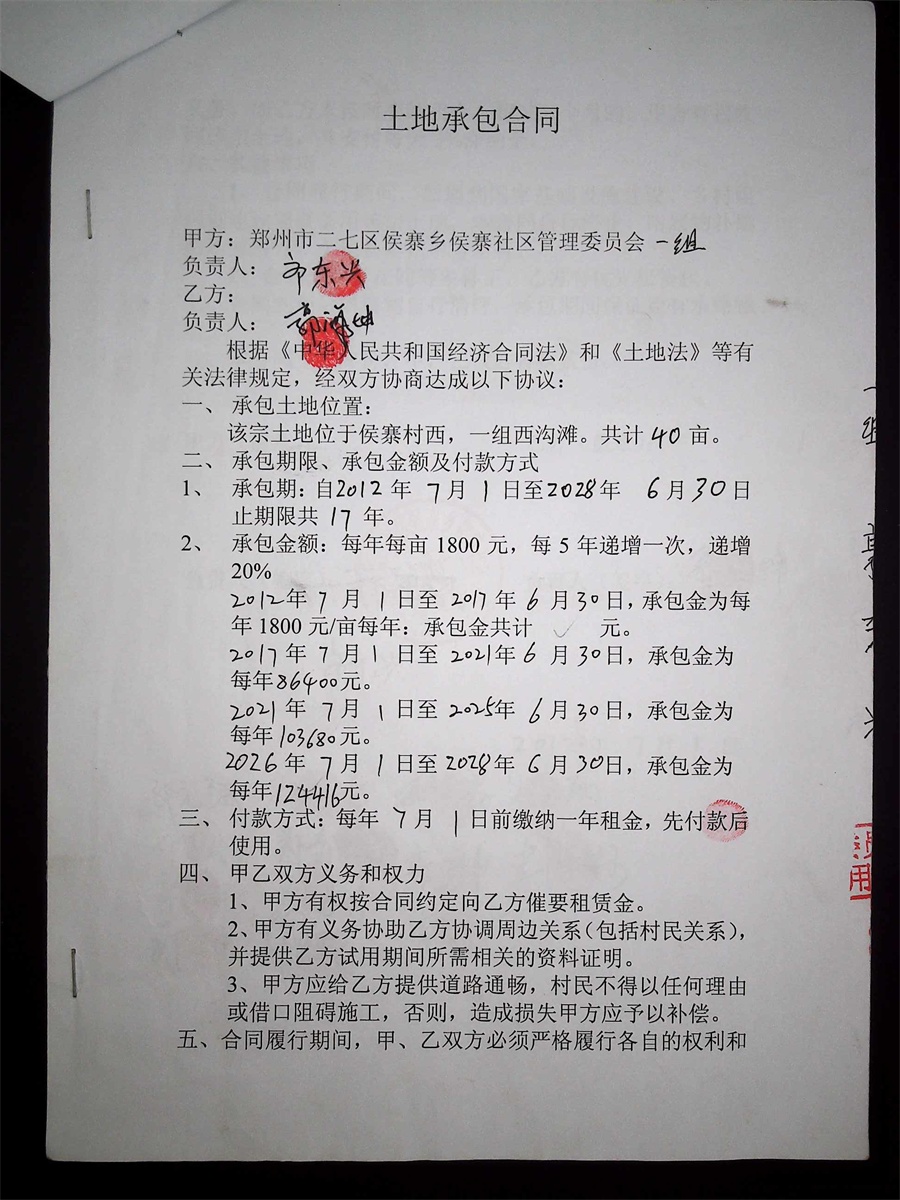 土地承包合同
甲方：郑州市二七区侯寨乡侯寨社区管理委员会 一组
负责人： 东兴
乙方：
负责人： 郭
根据《中华人民共和国经济合同法》和《土地法》等有
关法律规定，经双方协商达成以下协议：
一、 承包土地位置：
该宗土地位于侯寨村西，一组西沟滩。共计 40 亩。
二、 承包期限、承包金额及付款方式
1、 承包期：自2012 年 7 月 1 日至2028年 6 月 30 日
止期限共 17 年。
2、 承包金额：每年每亩 1800 元，每 5 年递增一次，递增
20%
2012年 7 月 1 日至 2017 年 6 月 30 日，承包金为每
年 1800 元/亩每年：承包金共计 元。
2017 年 7 月 1 日至 2021年 6 月 30日，承包金为
每年86400元。
2021 年 7 月 1 日至 2025年 6 月 30 日，承包金为
每年103680元。
2026 年 7 月 1 日至 2028 年 6 月 30日，承包金为
每年124416元。
三、 付款方式：每年 7 月 1 日前缴纳一年租金，先付款后
使用。
四、 甲乙双方义务和权力
1、甲方有权按合同约定向乙方催要租赁金。
2、甲方有义务协助乙方协调周边关系（包括村民关系），
并提供乙方试用期间所需相关的资料证明。
3、甲方应给乙方提供道路通畅，村民不得以任何理由
或借口阻碍施工，否则，造成损失甲方应予以补偿。
五、合同履行期间，甲、乙双方必须严格履行各自的权利和
一
用